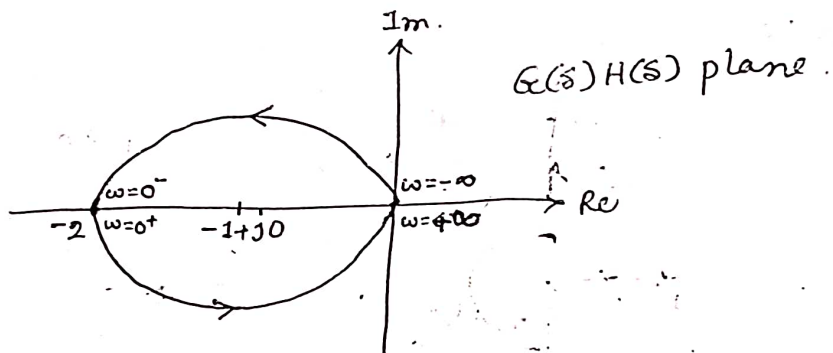 Im.
G(s)H(s) plane.
ω=0⁻
ω=-∞
-2
ω=0⁺
-1+j0
ω=+∞
Re